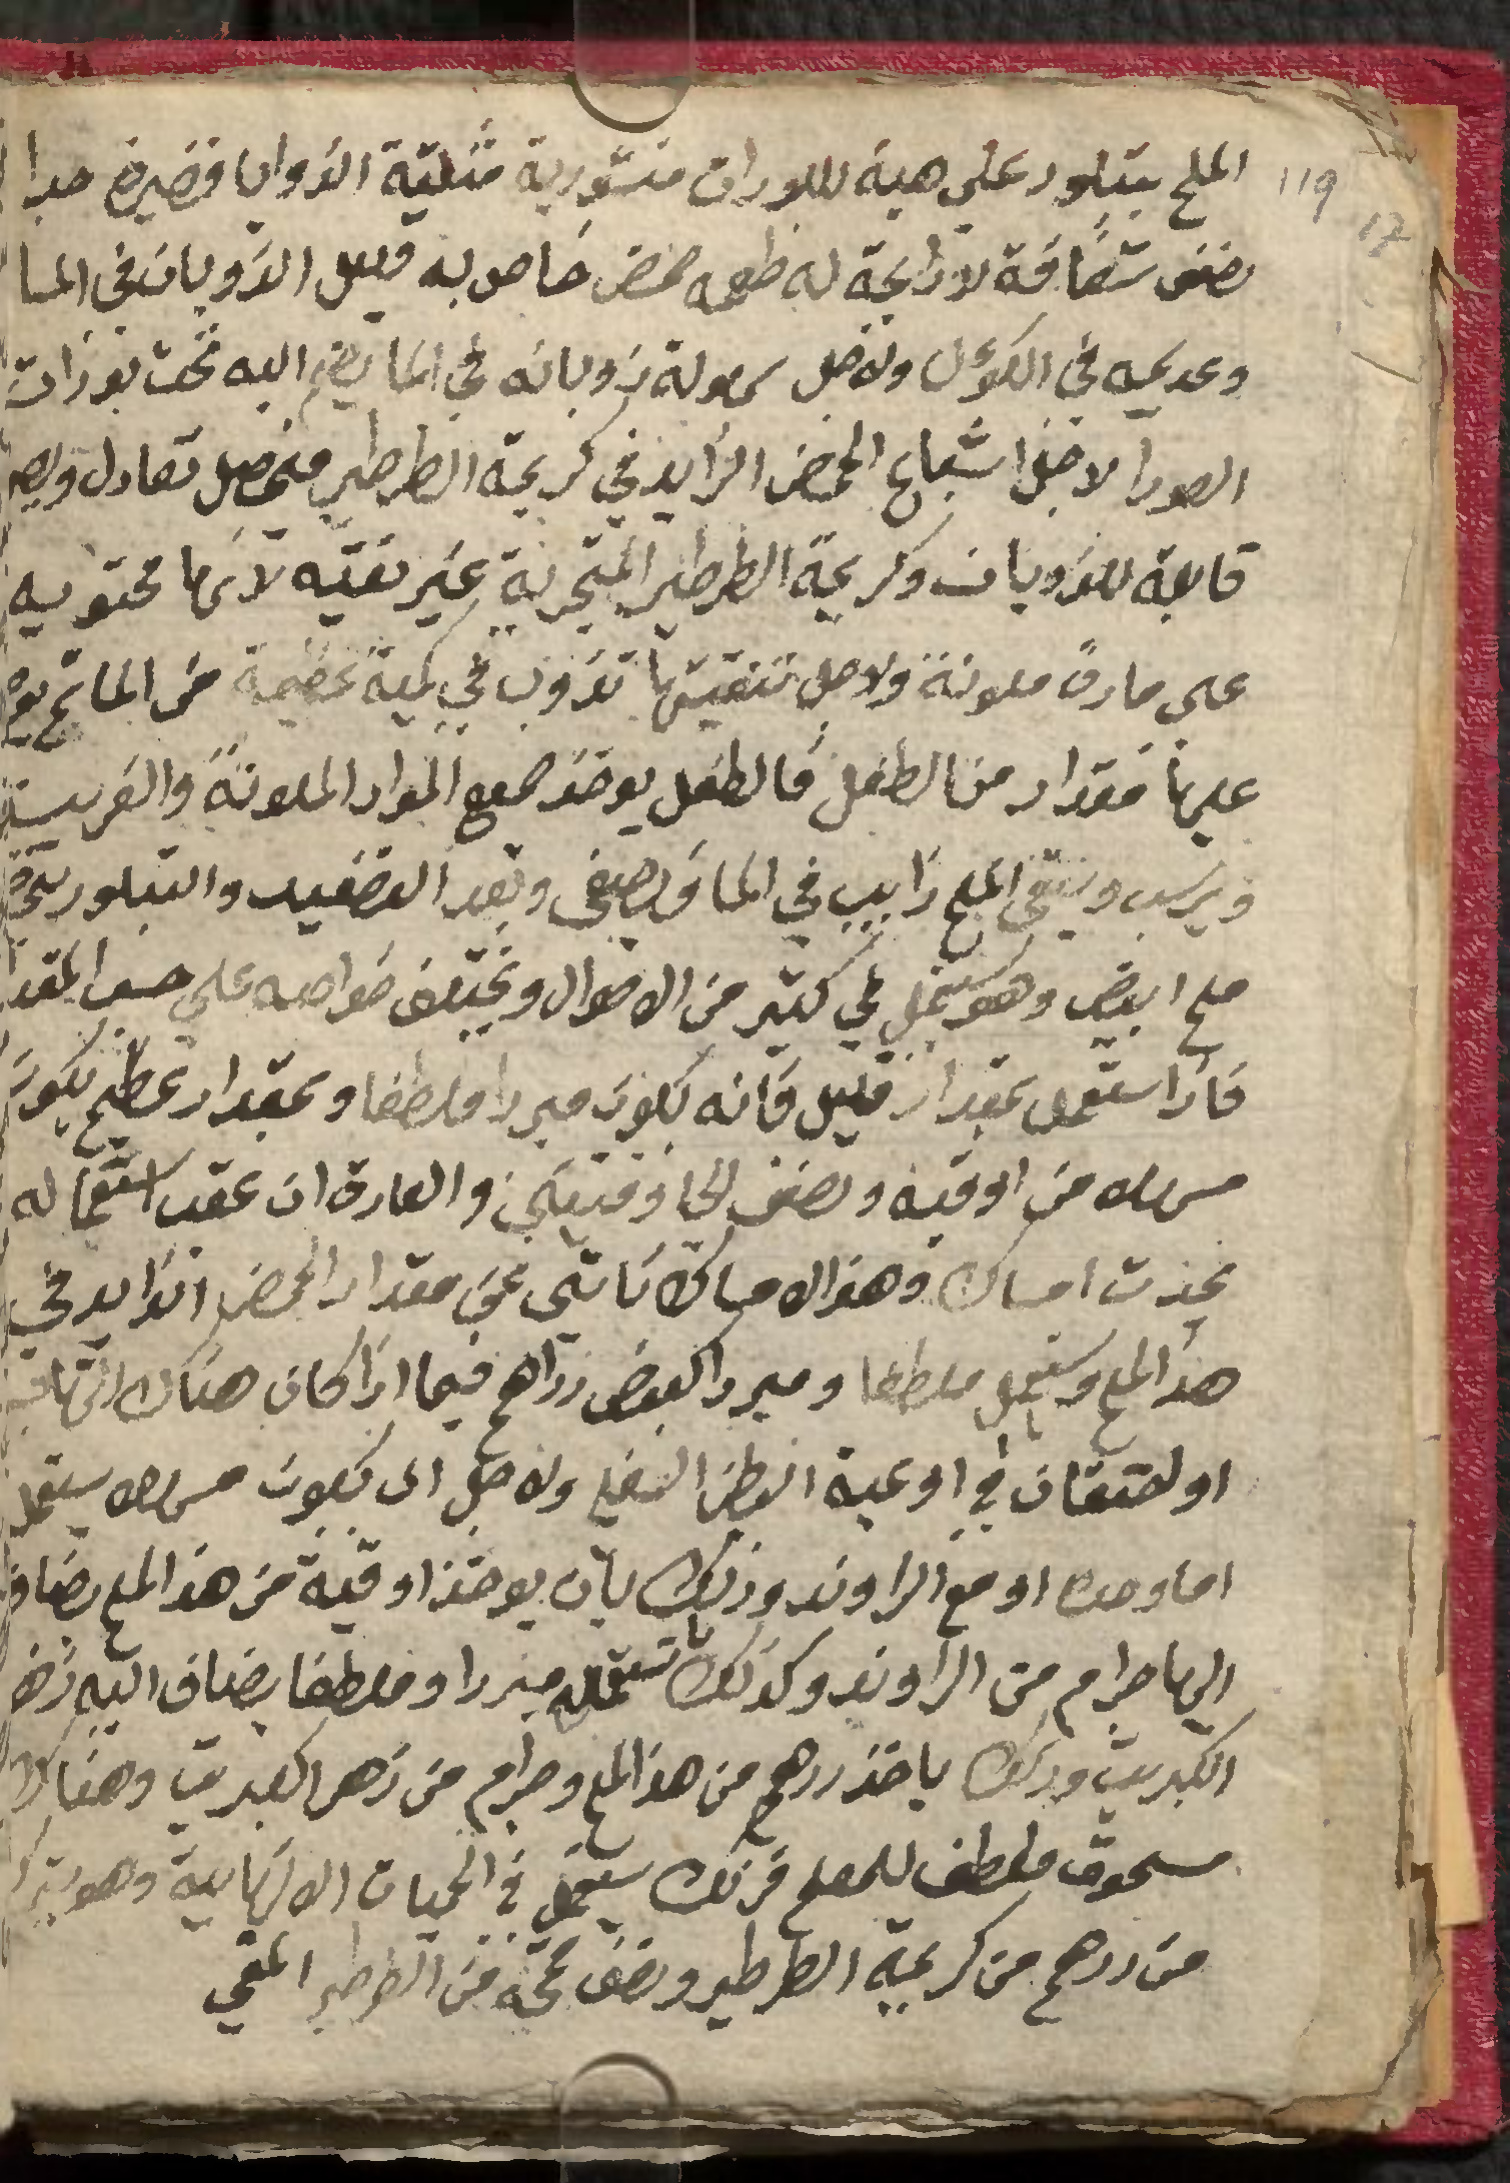 119
12
الملح يتبلور على هية بللورات منشورية مثلثية الزوايا قصيرة جدا
نصف شفافة لا رايحة له طعمه حمض خاص به قليل الذوبان في الما
وعديمه في الكوءل ولاجل سهولة ذوبانه في الما يضم اليه تحت بورات
الصودا لاجل اشباع الحمض الزايد في كريمة الطرطير فيحصل تعادل ويصير
قابلة للذوبان وكريمة الطرطير المتجرية غير نقيه لانها محتويه
على مادة ملونة ولاجل تنقيتها تذوب في كمية عظيمة من الما ثم يوضع
عليها مقدار من الطفل فالطفل يوخذ جميع المواد الملونة والغريبة
ويرسب ويبقى الملح ذايب في الما ويصفى وبعد التصعيد والتبلور يتحصل
ملح ابيض وهو يستعمل في كثير من الاحوال وتختلف خواصه على حسب المقدار
فاذا استعمل بمقدار قليل فانه يكون مبردا ملطفا وبمقدار عظيم يكون
مسهلا من اوقيه ونصف الى اوقيتين والعادة ان عقب استعماله
يحدث امساك وهذا الامساك ناشي عن مقدار الحمض الزايد في
هذا الملح ويستعمل ملطفا ومبردا كبعض دراهم فيما اذا كان هناك التهاب
او احتقان في اوعية البطن السفلي ولاجل ان يكون مسهلا يستعمل
اما وحده او مع الراوند وذلك بان يوخذ اوقية من هذا الملح يضاف
اليها جرام من الراوند وكذلك تستعمله مبردا وملطفا يضاف اليه زهر
الكبريت وذلك ياخذ درهم من هذا الملح وجرام من زهر الكبريت وهناك
مسحوق ملطف للمعلم فرنك يستعمل في الحميات الالتهابية وهو يتركب
من درهم من كريمة الطرطير ونصف قمحة من الطرطير المقي